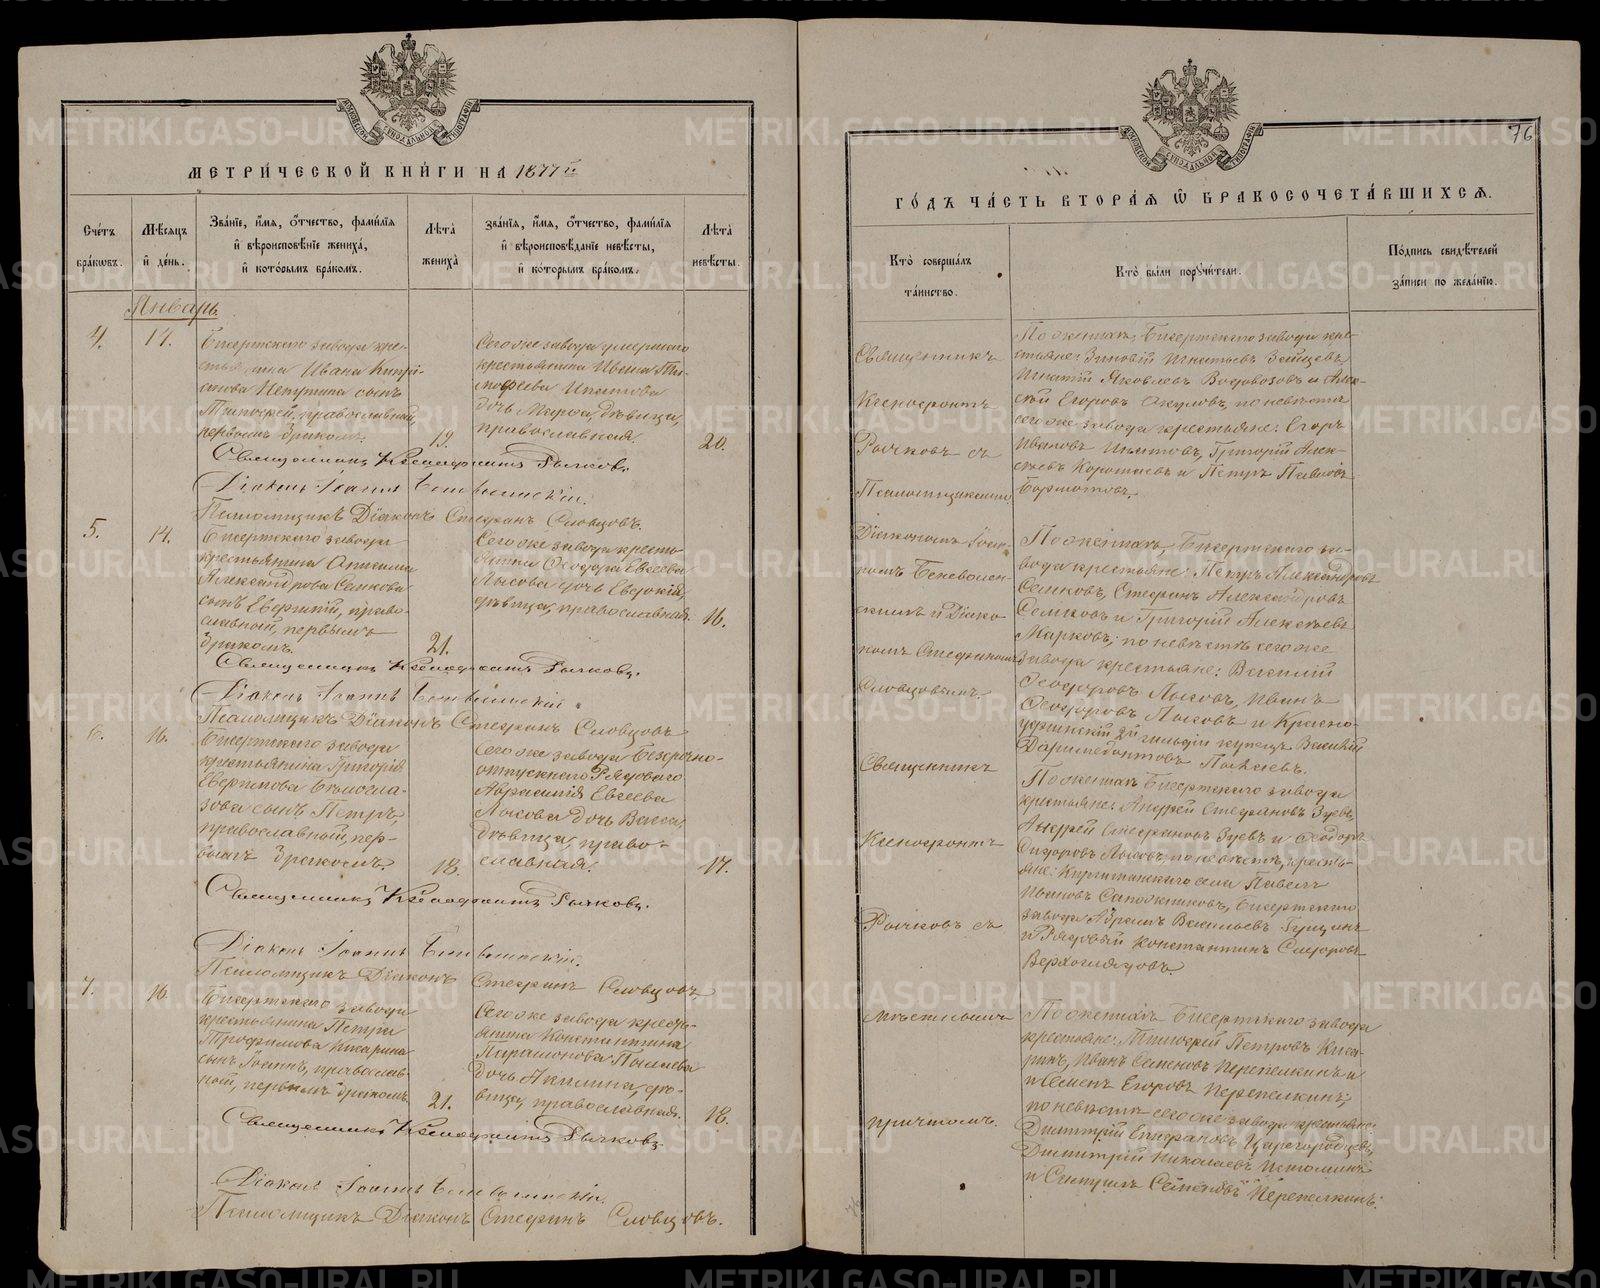 МЕТРИЧЕСКОЙ КНИГИ НА 1877й
Счетъ браковъ.
Мѣсяцъ и день.
Званіе, имя, отчество, фамилія и вѣроисповѣніе жениха, и которымъ бракомъ.
Лѣта жениха
званія, имя, отчество, фамилія и вѣроисповѣданіе невѣсты, и которымъ бракомъ.
Лѣта невѣсты.
Январь
4.
14.
Бисертскаго завода кре-
стьянина Ивана
сынъ
Тимофей, православный,
первымъ бракомъ.
19.
Сегоже завода умершаго
крестьянина Ивана Ти-
мофеева Ипатова
дочь Марфа, дѣвица,
православная.
20.
Священникъ Ксенофонтъ Рычковъ.
Діаконъ Іоаннъ Беневоленскій.
Псаломщикъ Діаконъ Стефанъ Словцовъ.
5.
14.
Бисертскаго завода
крестьянина
Александрова Сенкова
сынъ Евгений, право-
славный, первымъ
бракомъ.
21.
Сегоже завода кресть-
янина Ѳеодора Евсеева
Лысова дочь Евдокія,
дѣвица, православная.
16.
Священникъ Ксенофонтъ Рычковъ.
Діаконъ Іоаннъ Беневоленскій.
Псаломщикъ Діаконъ Стефанъ Словцовъ.
6.
16.
Бисертскаго завода
крестьянина Григорія
Белогла-
зова сынъ Петръ,
православный, пер-
вымъ бракомъ.
18.
Сегоже завода Безсрочно-
отпускнаго Рядоваго
Евсеева
Лысова дочь Васса,
дѣвица, право-
славная.
17.
Священникъ Ксенофонтъ Рычковъ.
Діаконъ Іоаннъ Беневоленскій.
Псаломщикъ Діаконъ Стефанъ Словцовъ.
7.
16.
Бисертскаго завода
крестьянина Петра
Трофимова Кисарина
сынъ Іоаннъ, православ-
ной, первымъ бракомъ.
21.
Сегоже завода кресть-
янина Константина
Парамонова
дочь Акилина, дѣ-
вица, православная.
18.
Священникъ Ксенофонтъ Рычковъ.
Діаконъ Іоаннъ Беневоленскій.
Псаломщикъ Діаконъ Стефанъ Словцовъ.
76
ГОДЪ ЧАСТЬ ВТОРАЯ Ѿ БРАКОСОЧЕТАВШИХСЯ.
Кто совершалъ таинство.
Кто были поручители.
Подпись свидѣтелей записи по желанію.
Священникъ
Ксенофонтъ
Рычковъ съ
Псаломщиками
Діакономъ Іоан-
номъ Беневолен-
скимъ и Діако-
номъ Стефаномъ
Словцовымъ.
Священникъ
Ксенофонтъ
Рычковъ съ
мѣстнымъ
причтомъ.
По женихѣ Бисертскаго завода кре-
стьяне: Зиновій Игнатьевъ Зайцевъ
Игнатій Яковлевъ Водовозовъ и Алек-
сѣй Егоровъ Окуловъ, по невѣстѣ
сегоже завода крестьяне: Егоръ
Ивановъ Ипатовъ, Григорій Алек-
сѣевъ и Петръ Павловъ
По женихѣ, Бисертскаго за-
вода крестьяне: Петръ Александровъ
Сенковъ, Стефанъ Александровъ
Сенковъ и Григорій Алексѣевъ
Марковъ; по невѣстѣ сегоже
завода крестьяне: Василій
Ѳеодоровъ Лысовъ, Иванъ
Ѳеодоровъ Лысовъ и Красно-
уфимскій 2й гильдіи купецъ Василій
По женихѣ Бисертскаго завода
крестьяне: Андрей Стефановъ Зуевъ,
Андрей Стефановъ Зуевъ и Ѳеодоръ
Сидоровъ Лысовъ, по невѣстѣ, кресть-
яне: села Павелъ
Ивановъ Сапожниковъ, Бисертскаго
завода Абрамъ Васильевъ
и Рядовый Константинъ Сидоровъ
Верхоглядовъ.
По женихѣ Бисертскаго завода
крестьяне: Тимофей Петровъ Киса-
ринъ, Иванъ Семеновъ Перепелкинъ и
и Семенъ Егоровъ Перепелкинъ;
по невѣстѣ сегоже завода крестьяне:
Димитрій Епифановъ Царегородцевъ,
Димитрій Николаевъ
и Семеновъ Перепелкинъ.